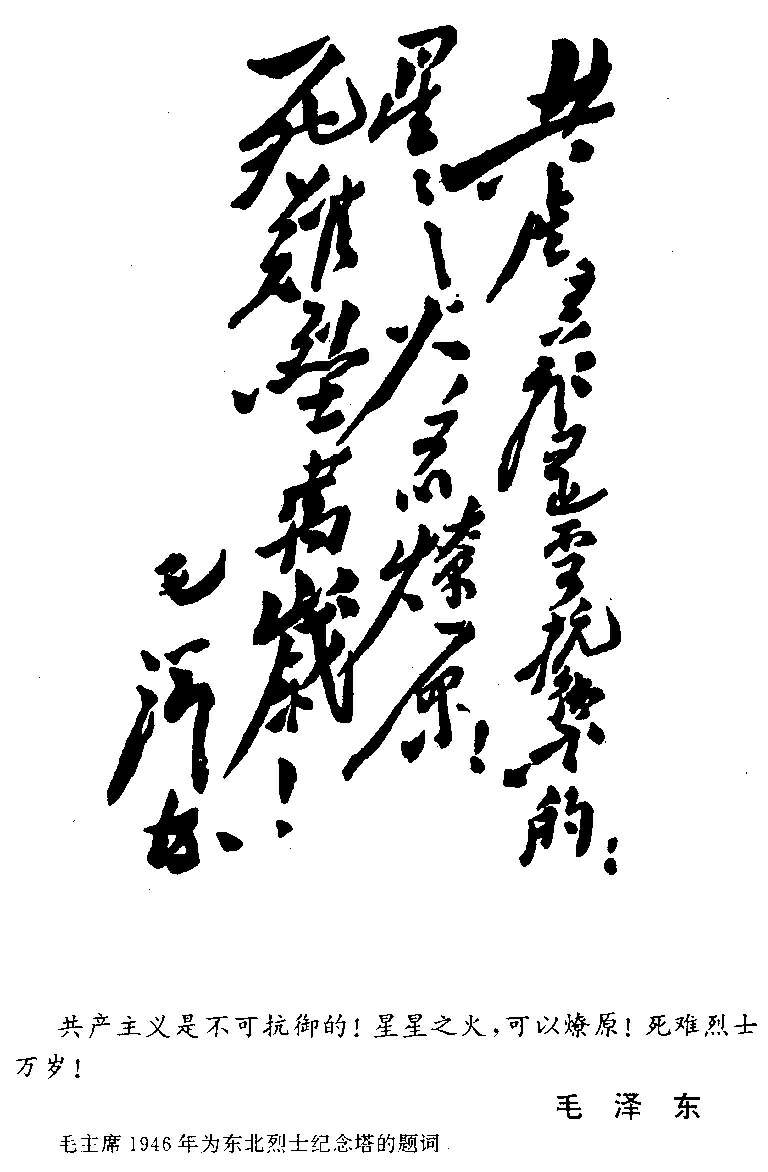 共產主義是不可抗禦的!
星々之火可以燎原!
死難烈士萬歲!
毛澤東
共产主义是不可抗御的!星星之火,可以燎原!死难烈士
万岁!
毛 泽 东
毛主席1946年为东北烈士纪念塔的题词.